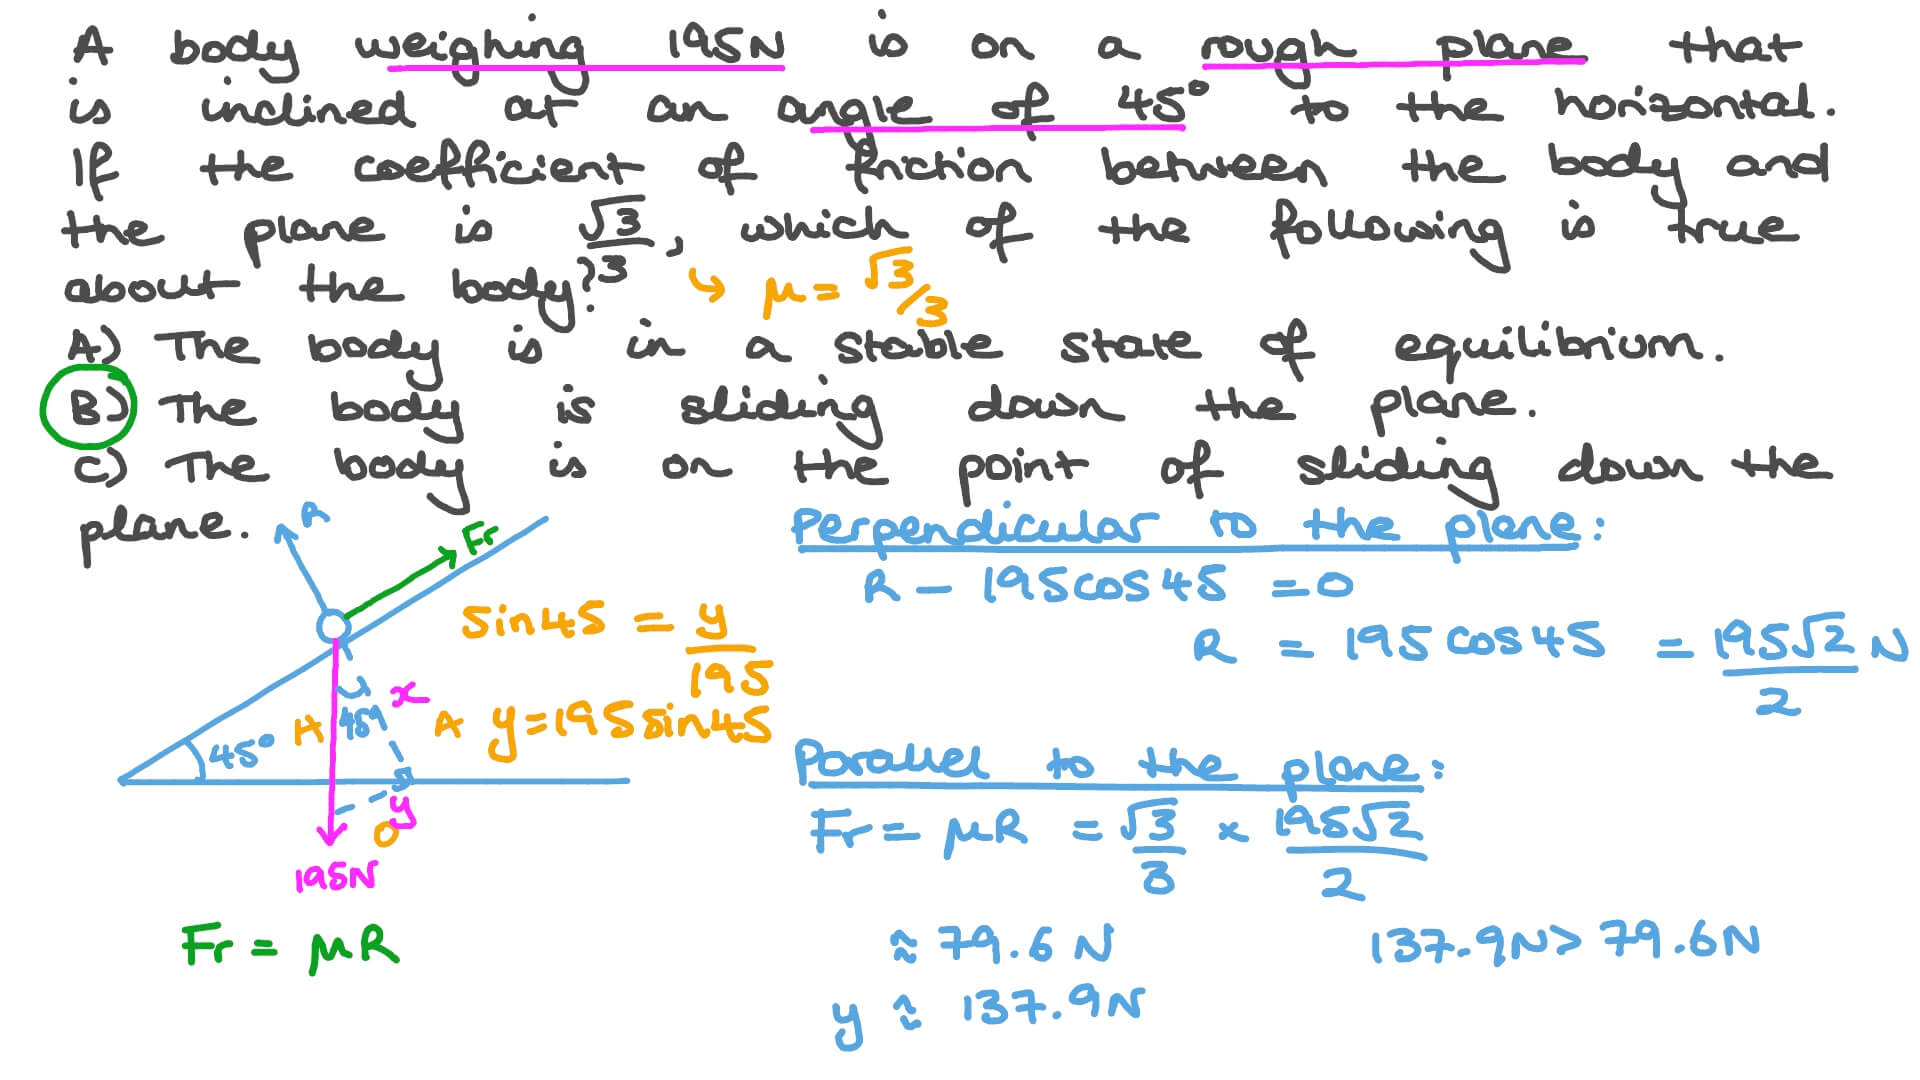 A body weighing 195N is on a rough plane that
is inclined at an angle of 45° to the horizontal.
If the coefficient of friction between the body and
the plane is √3/3, which of the following is true
about the body?
↪ μ = √3/3
A) The body is in a stable state of equilibrium.
B) The body is sliding down the plane.
C) The body is on the point of sliding down the
plane.
R
Fr
45°
H
45°
x
A
y
O
195N
Fr = μR
sin45 = y/195
y = 195sin45
Perpendicular to the plane:
R - 195cos45 = 0
R = 195cos45 = 195√2/2 N
Parallel to the plane:
Fr = μR = √3/3 × 195√2/2
≈ 79.6N
137.9N > 79.6N
y ≈ 137.9N